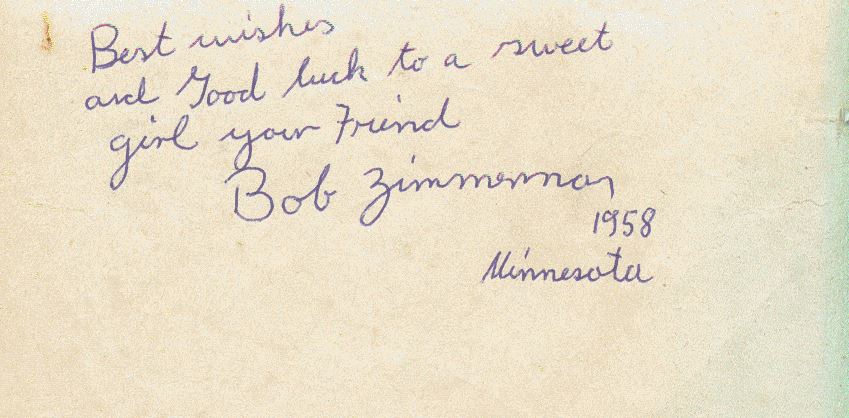 Best wishes
and Good luck to a sweet
girl your Friend
Bob Zimmerman
1958
Minnesota